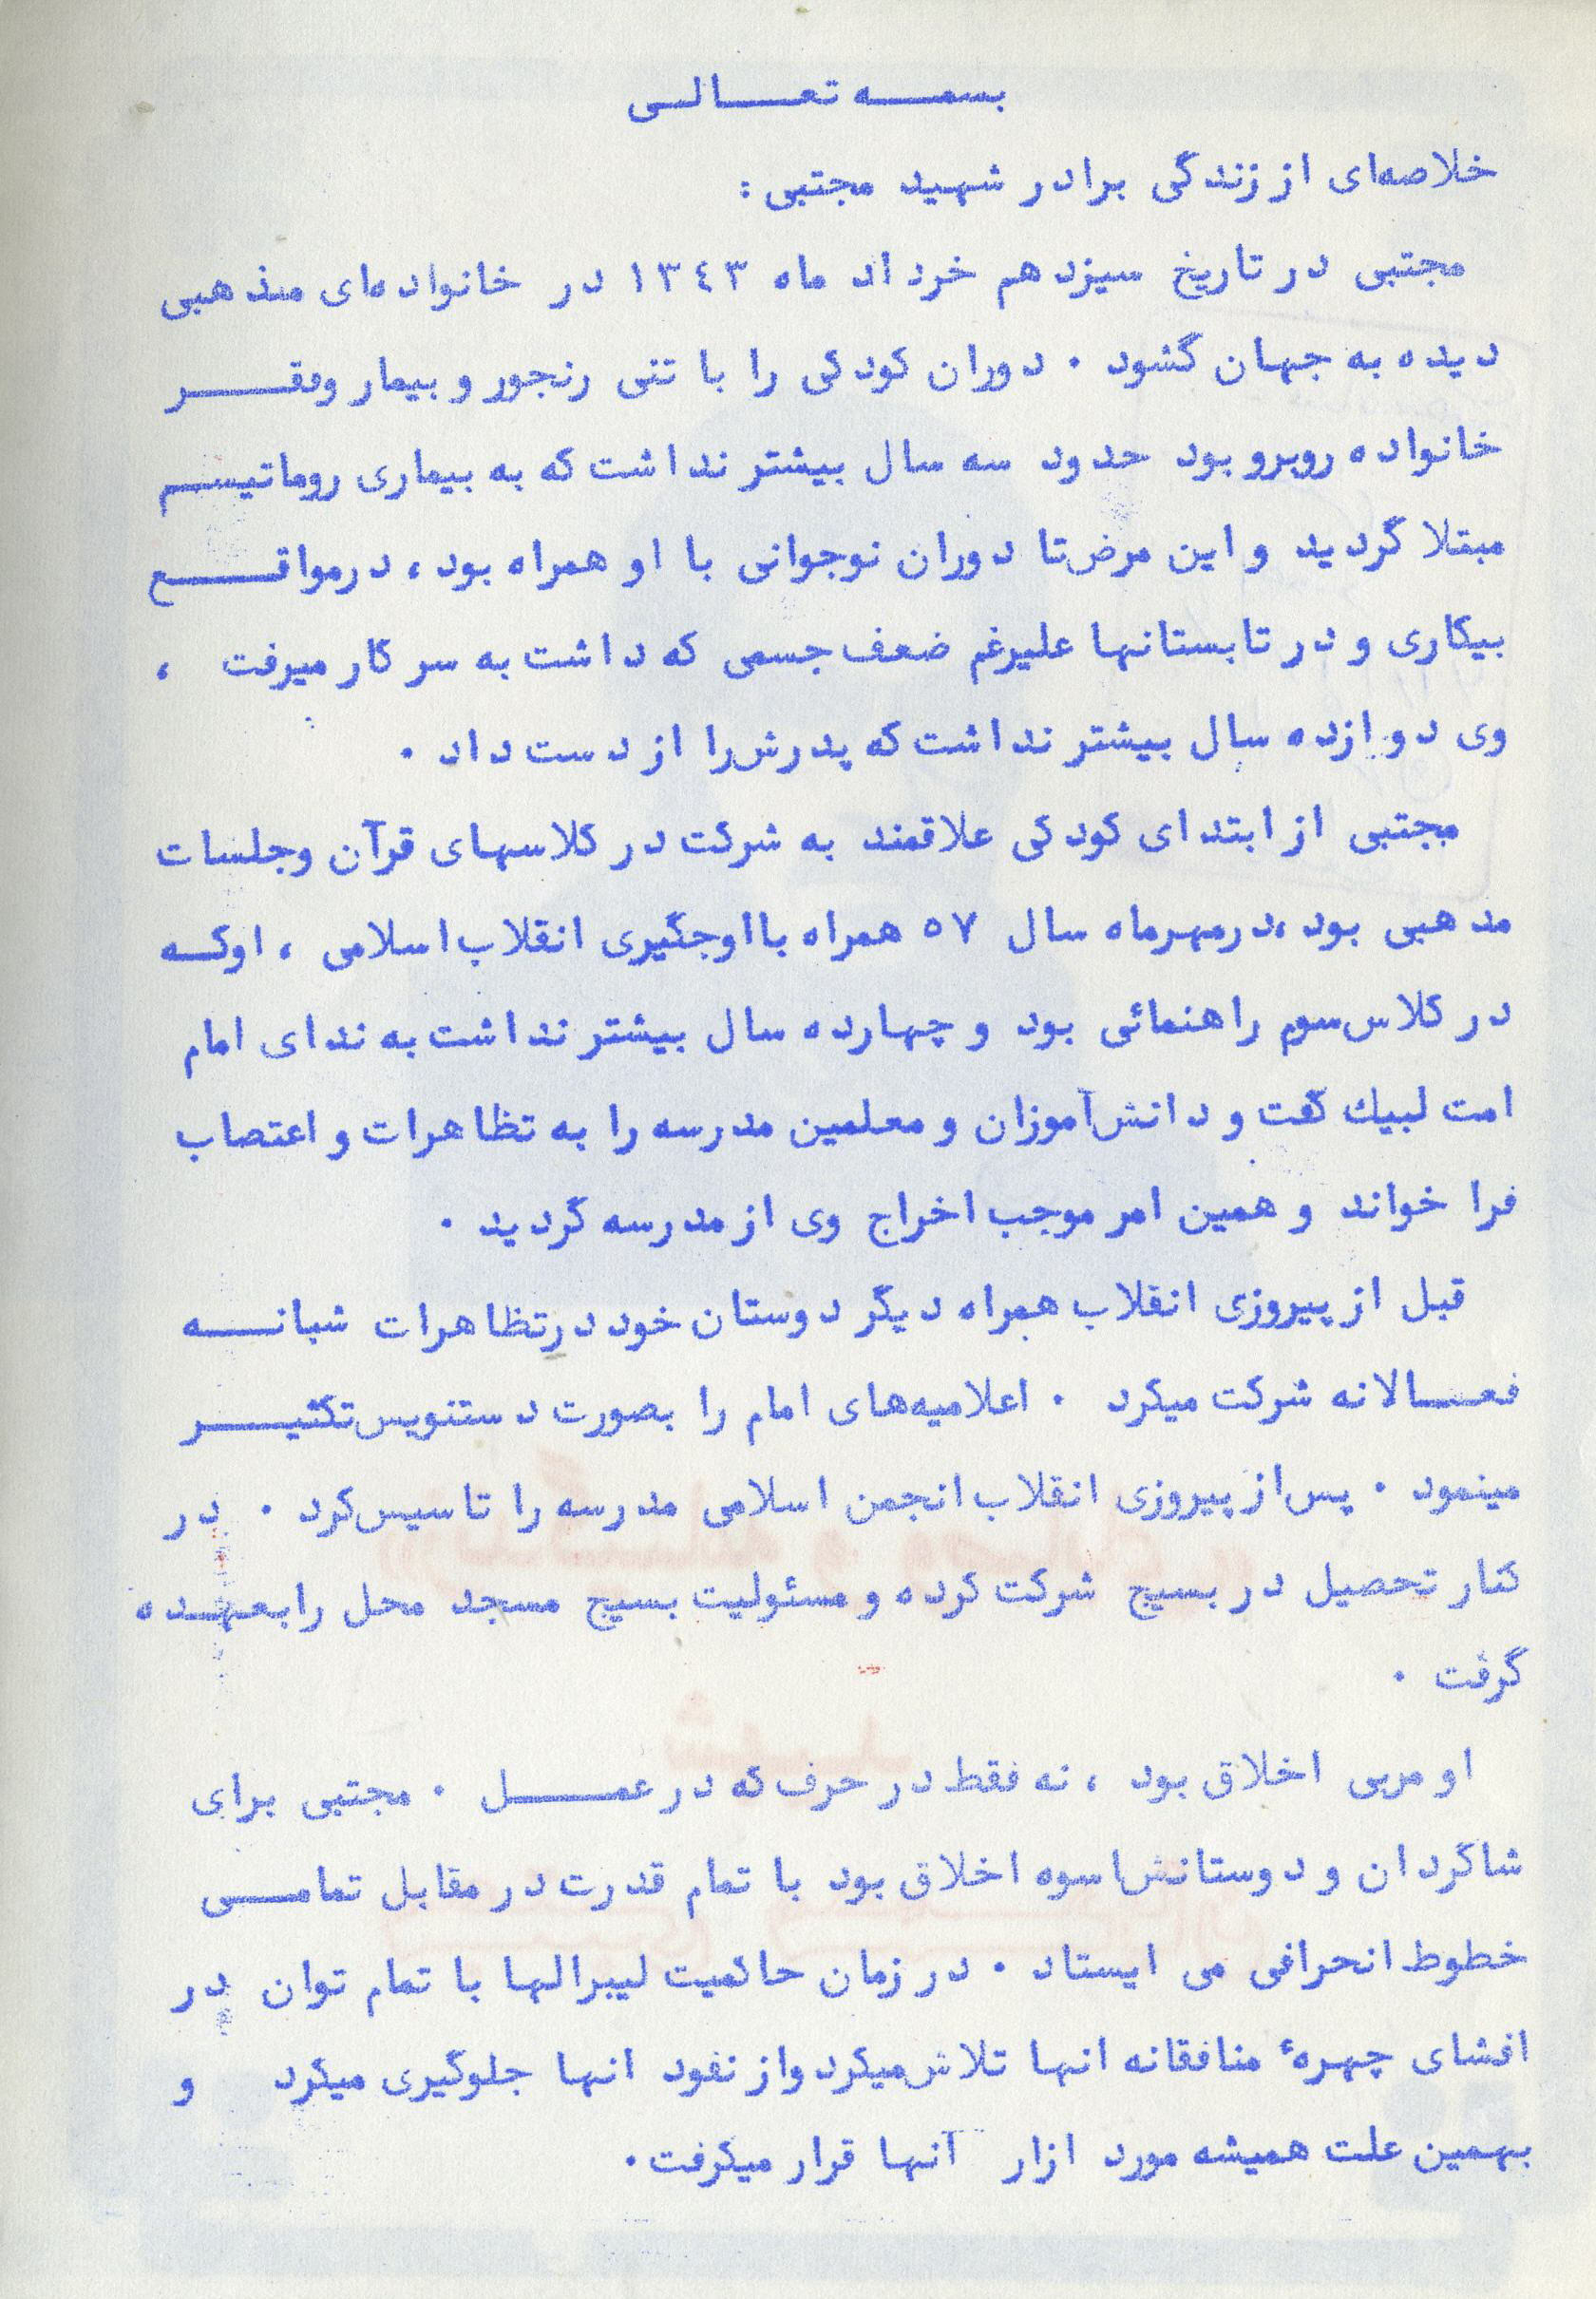 بسمه تعالی
خلاصه‌ای از زندگی برادر شهید مجتبی :
مجتبی در تاریخ سیزدهم خرداد ماه ۱۳٤۳ در خانواده‌ای مذهبی
دیده به جهان گشود ۰ دوران کودکی را با تنی رنجور و بیمار وفقر
خانواده روبرو بود حدود سه سال بیشتر نداشت که به بیماری روماتیسم
مبتلا گردید و این مرض تا دوران نوجوانی با او همراه بود ، درمواقع
بیکاری و در تابستانها علیرغم ضعف جسمی که داشت به سر کار میرفت ،
وی دوازده سال بیشتر نداشت که پدرش را از دست داد ۰
مجتبی از ابتدای کودکی علاقمند به شرکت در کلاسهای قرآن وجلسات
مدهبی بود ،درمهرماه سال ۵۷ همراه بااوجگیری انقلاب اسلامی ، اوکه
در کلاس سوم راهنمائی بود و چهارده سال بیشتر نداشت به ندای امام
امت لبیك گفت و دانش‌آموزان و معلمین مدرسه را به تظاهرات و اعتصاب
فرا خواند و همین امر موجب اخراج وی از مدرسه گردید ۰
قبل از پیروزی انقلاب همراه دیگر دوستان خود درتظاهرات شبانه
فعالانه شرکت میکرد ۰ اعلامیه‌های امام را بصورت دستنویس تکثیر
مینمود ۰ پس از پیروزی انقلاب انجمن اسلامی مدرسه را تاسیس کرد ۰ در
کنار تحصیل در بسیج شرکت کرده و مسئولیت بسیج مسجد محل رابعهده
گرفت ۰
او مربی اخلاق بود ، نه فقط در حرف که در عمل ۰ مجتبی برای
شاگردان و دوستانش اسوه اخلاق بود با تمام قدرت در مقابل تمامی
خطوط انحرافی می ایستاد ۰ در زمان حاکمیت لیبرالها با تمام توان در
افشای چهرهٔ منافقانه انها تلاش میکرد واز نفود انها جلوگیری میکرد و
بهمین علت همیشه مورد ازار آنها قرار میگرفت ۰